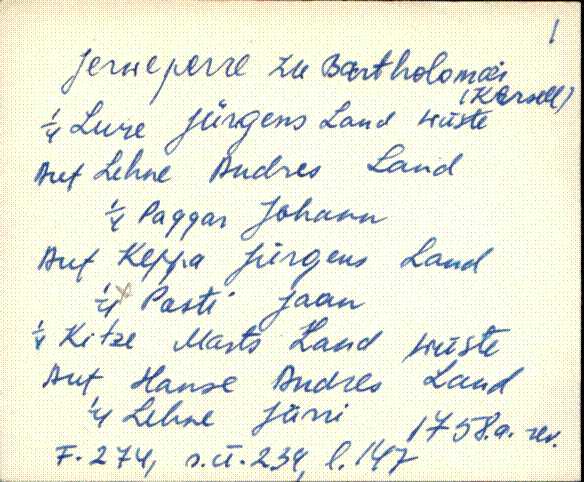 1
Jerweperre zu Bartholomäi
(Kersell)
1/4 Lure Jürgens Land wüste
Auf Lehne Andres Land
1/4 Paggar Johann
Auf Keppa Jürgens Land
1/4 Pasti Jaan
1/4 Kitze Marts Land wüste
Auf Hanse Andres Land
1/4 Lehne Jürri
1758.a. rev.
F.274, n.ü.234, l.147